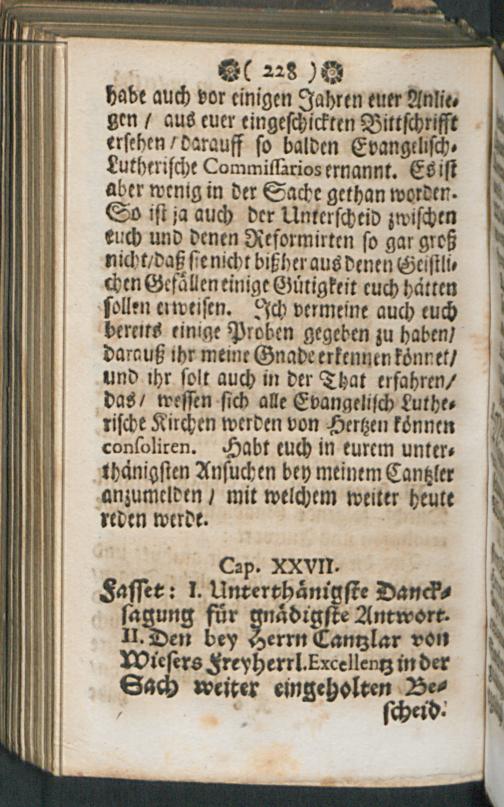 ( 228 )
habe auch vor einigen Jahren euer Anlie-
gen / aus euer eingeschickten Bittschrifft
ersehen / darauff so balden Evangelisch-
Lutherische Commissarios ernannt. Es ist
aber wenig in der Sache gethan worden.
So ist ja auch der Unterscheid zwischen
euch und denen Reformirten so gar groß
nicht/daß sie nicht bißher aus denen Geistli-
chen Gefällen einige Gütigkeit euch hätten
sollen erweisen. Ich vermeine auch euch
bereits einige Proben gegeben zu haben/
darauß ihr meine Gnade erkennen könnet/
und ihr solt auch in der That erfahren/
das / wessen sich alle Evangelisch Luthe-
rische Kirchen werden von Hertzen können
consoliren. Habt euch in eurem unter-
thänigsten Ansuchen bey meinem Cantzler
anzumelden / mit welchem weiter heute
reden werde.
Cap. XXVII.
Fasset: I. Unterthänigste Danck-
sagung für gnädigste Antwort.
II. Den bey Herrn Cantzlar von
Wiesers Freyherrl. Excellentz in der
Sach weiter eingeholten Be-
scheid.